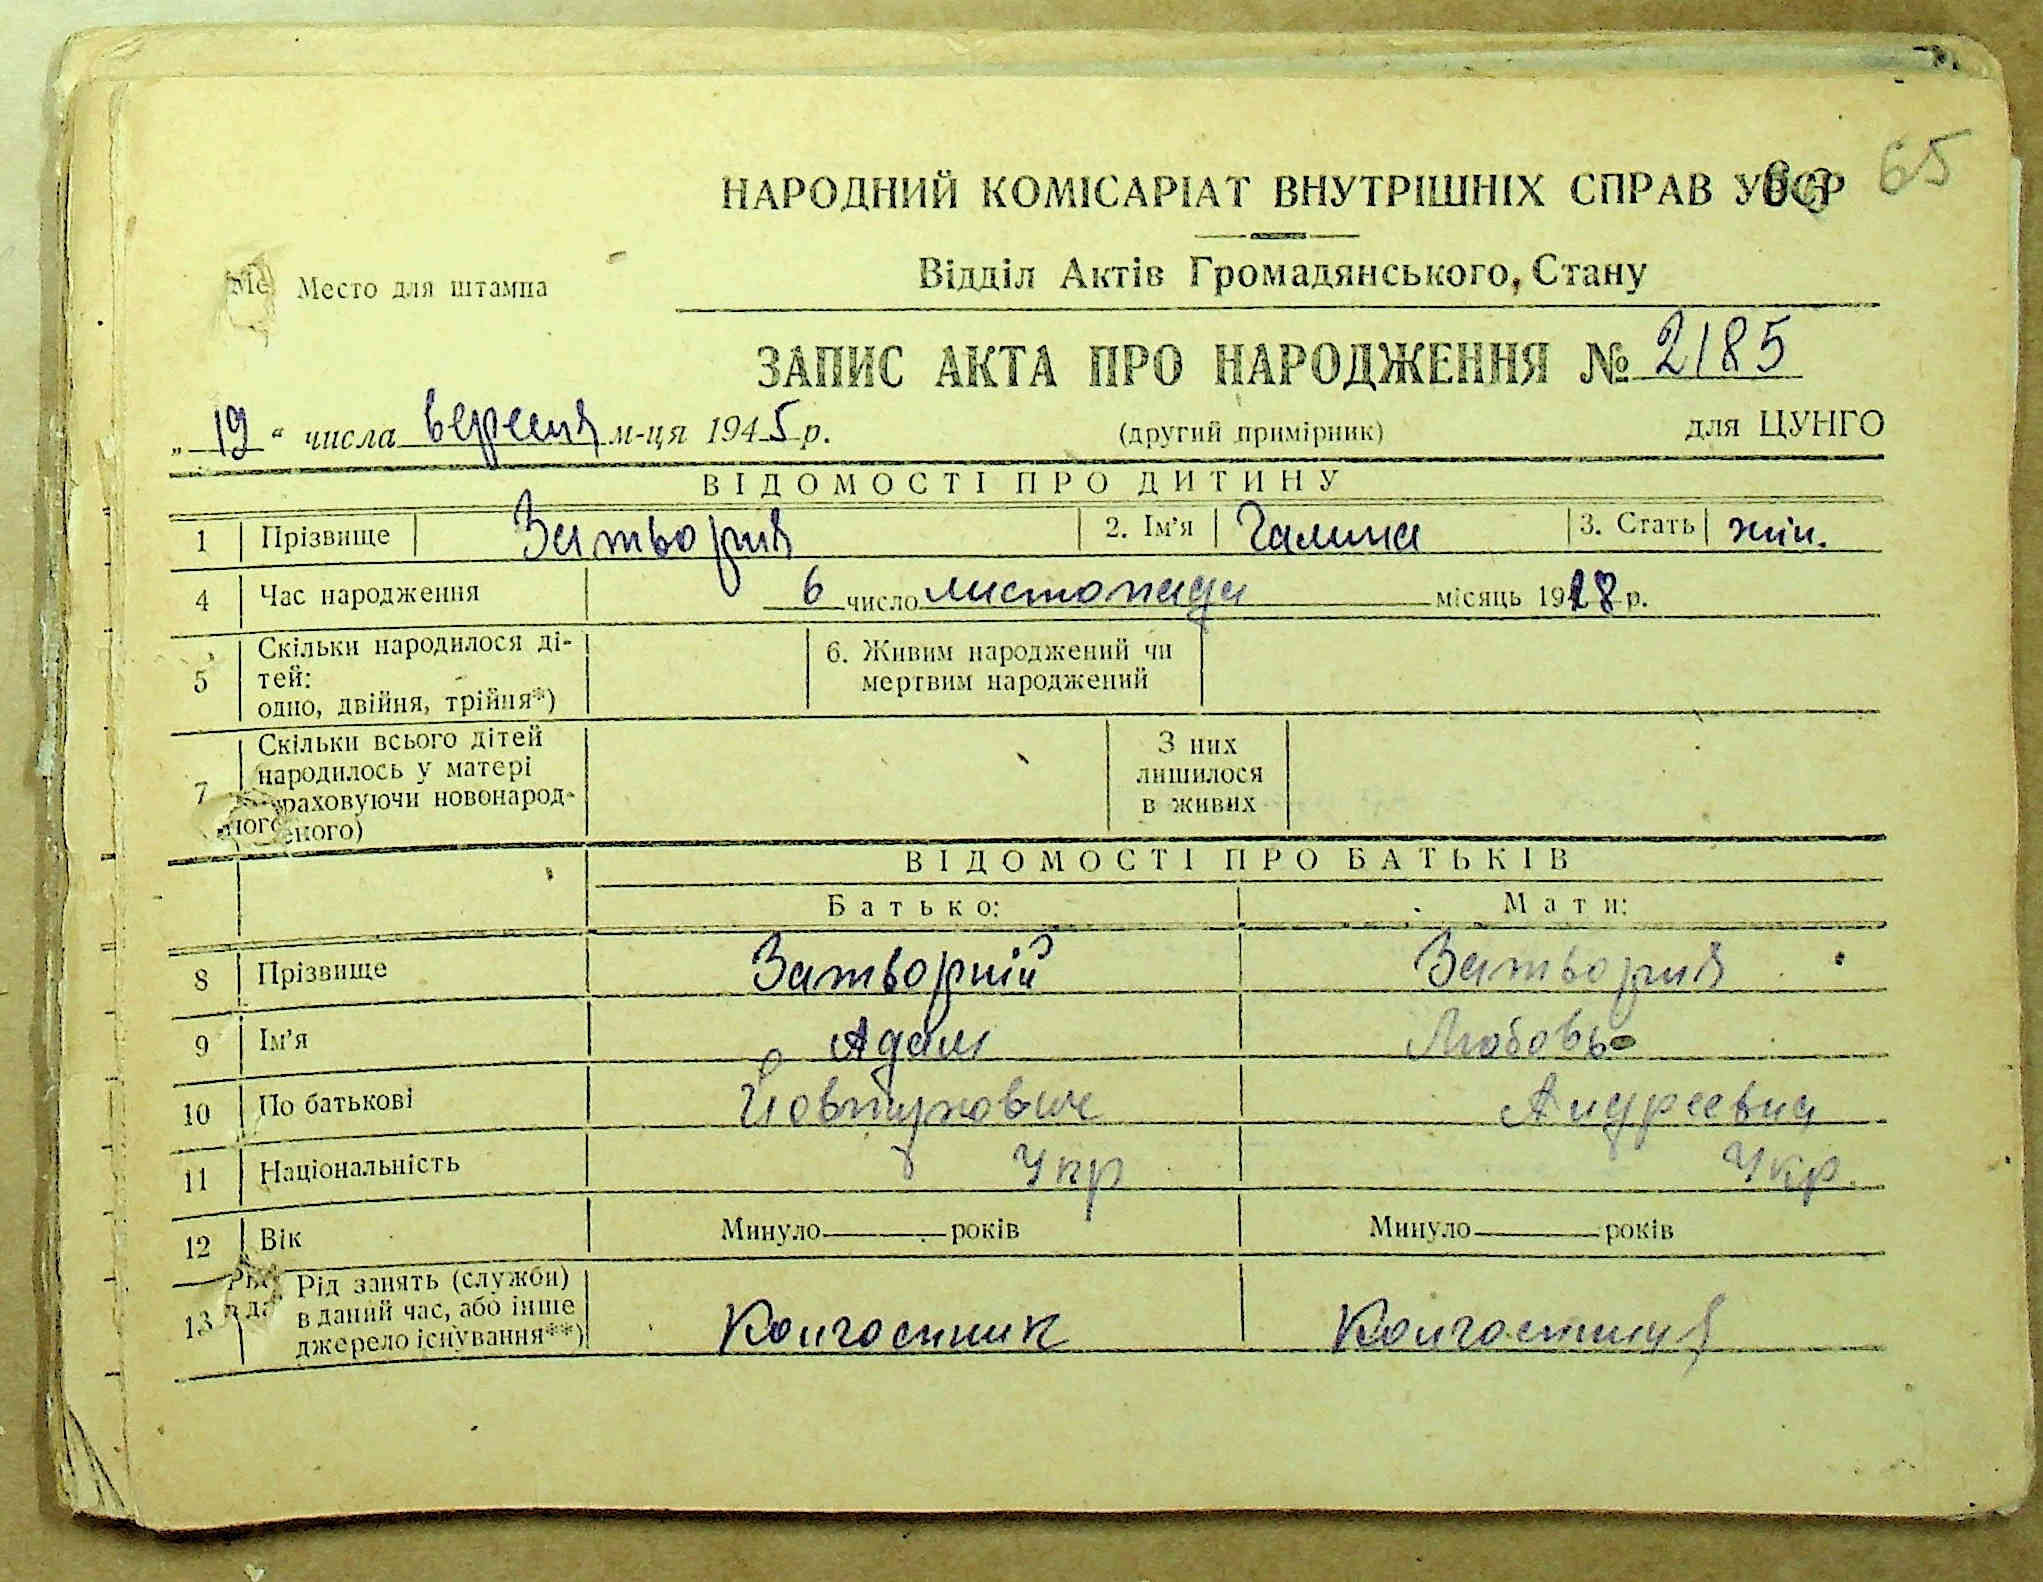 65
НАРОДНИЙ КОМІСАРІАТ ВНУТРІШНІХ СПРАВ УРСР
Відділ Актів Громадянського Стану
Место для штампа
ЗАПИС АКТА ПРО НАРОДЖЕННЯ № 2185
„19“ числа вересня м-ця 1945 р. (другий примірник) для ЦУНГО
ВІДОМОСТІ ПРО ДИТИНУ
1 Прізвище Затворня 2. Ім'я Галина 3. Стать жін.
4 Час народження 6 число листопада місяць 1928 р.
5 Скільки народилося ді-
тей:
одно, двійня, трійня*)
6. Живим народжений чи
мертвим народжений
7 Скільки всього дітей
народилось у матері
враховуючи новонарод-
еного)
З них
лишилося
в живих
ВІДОМОСТІ ПРО БАТЬКІВ
Батько: Мати:
8 Прізвище Затворній Затворня
9 Ім'я Адам Любовь
10 По батькові Йовтухович Андреевна
11 Національність Укр Укр.
12 Вік Минуло років Минуло років
13 Рід занять (служби)
в даний час, або інше
джерело існування**)
Колгоспник Колгоспниця